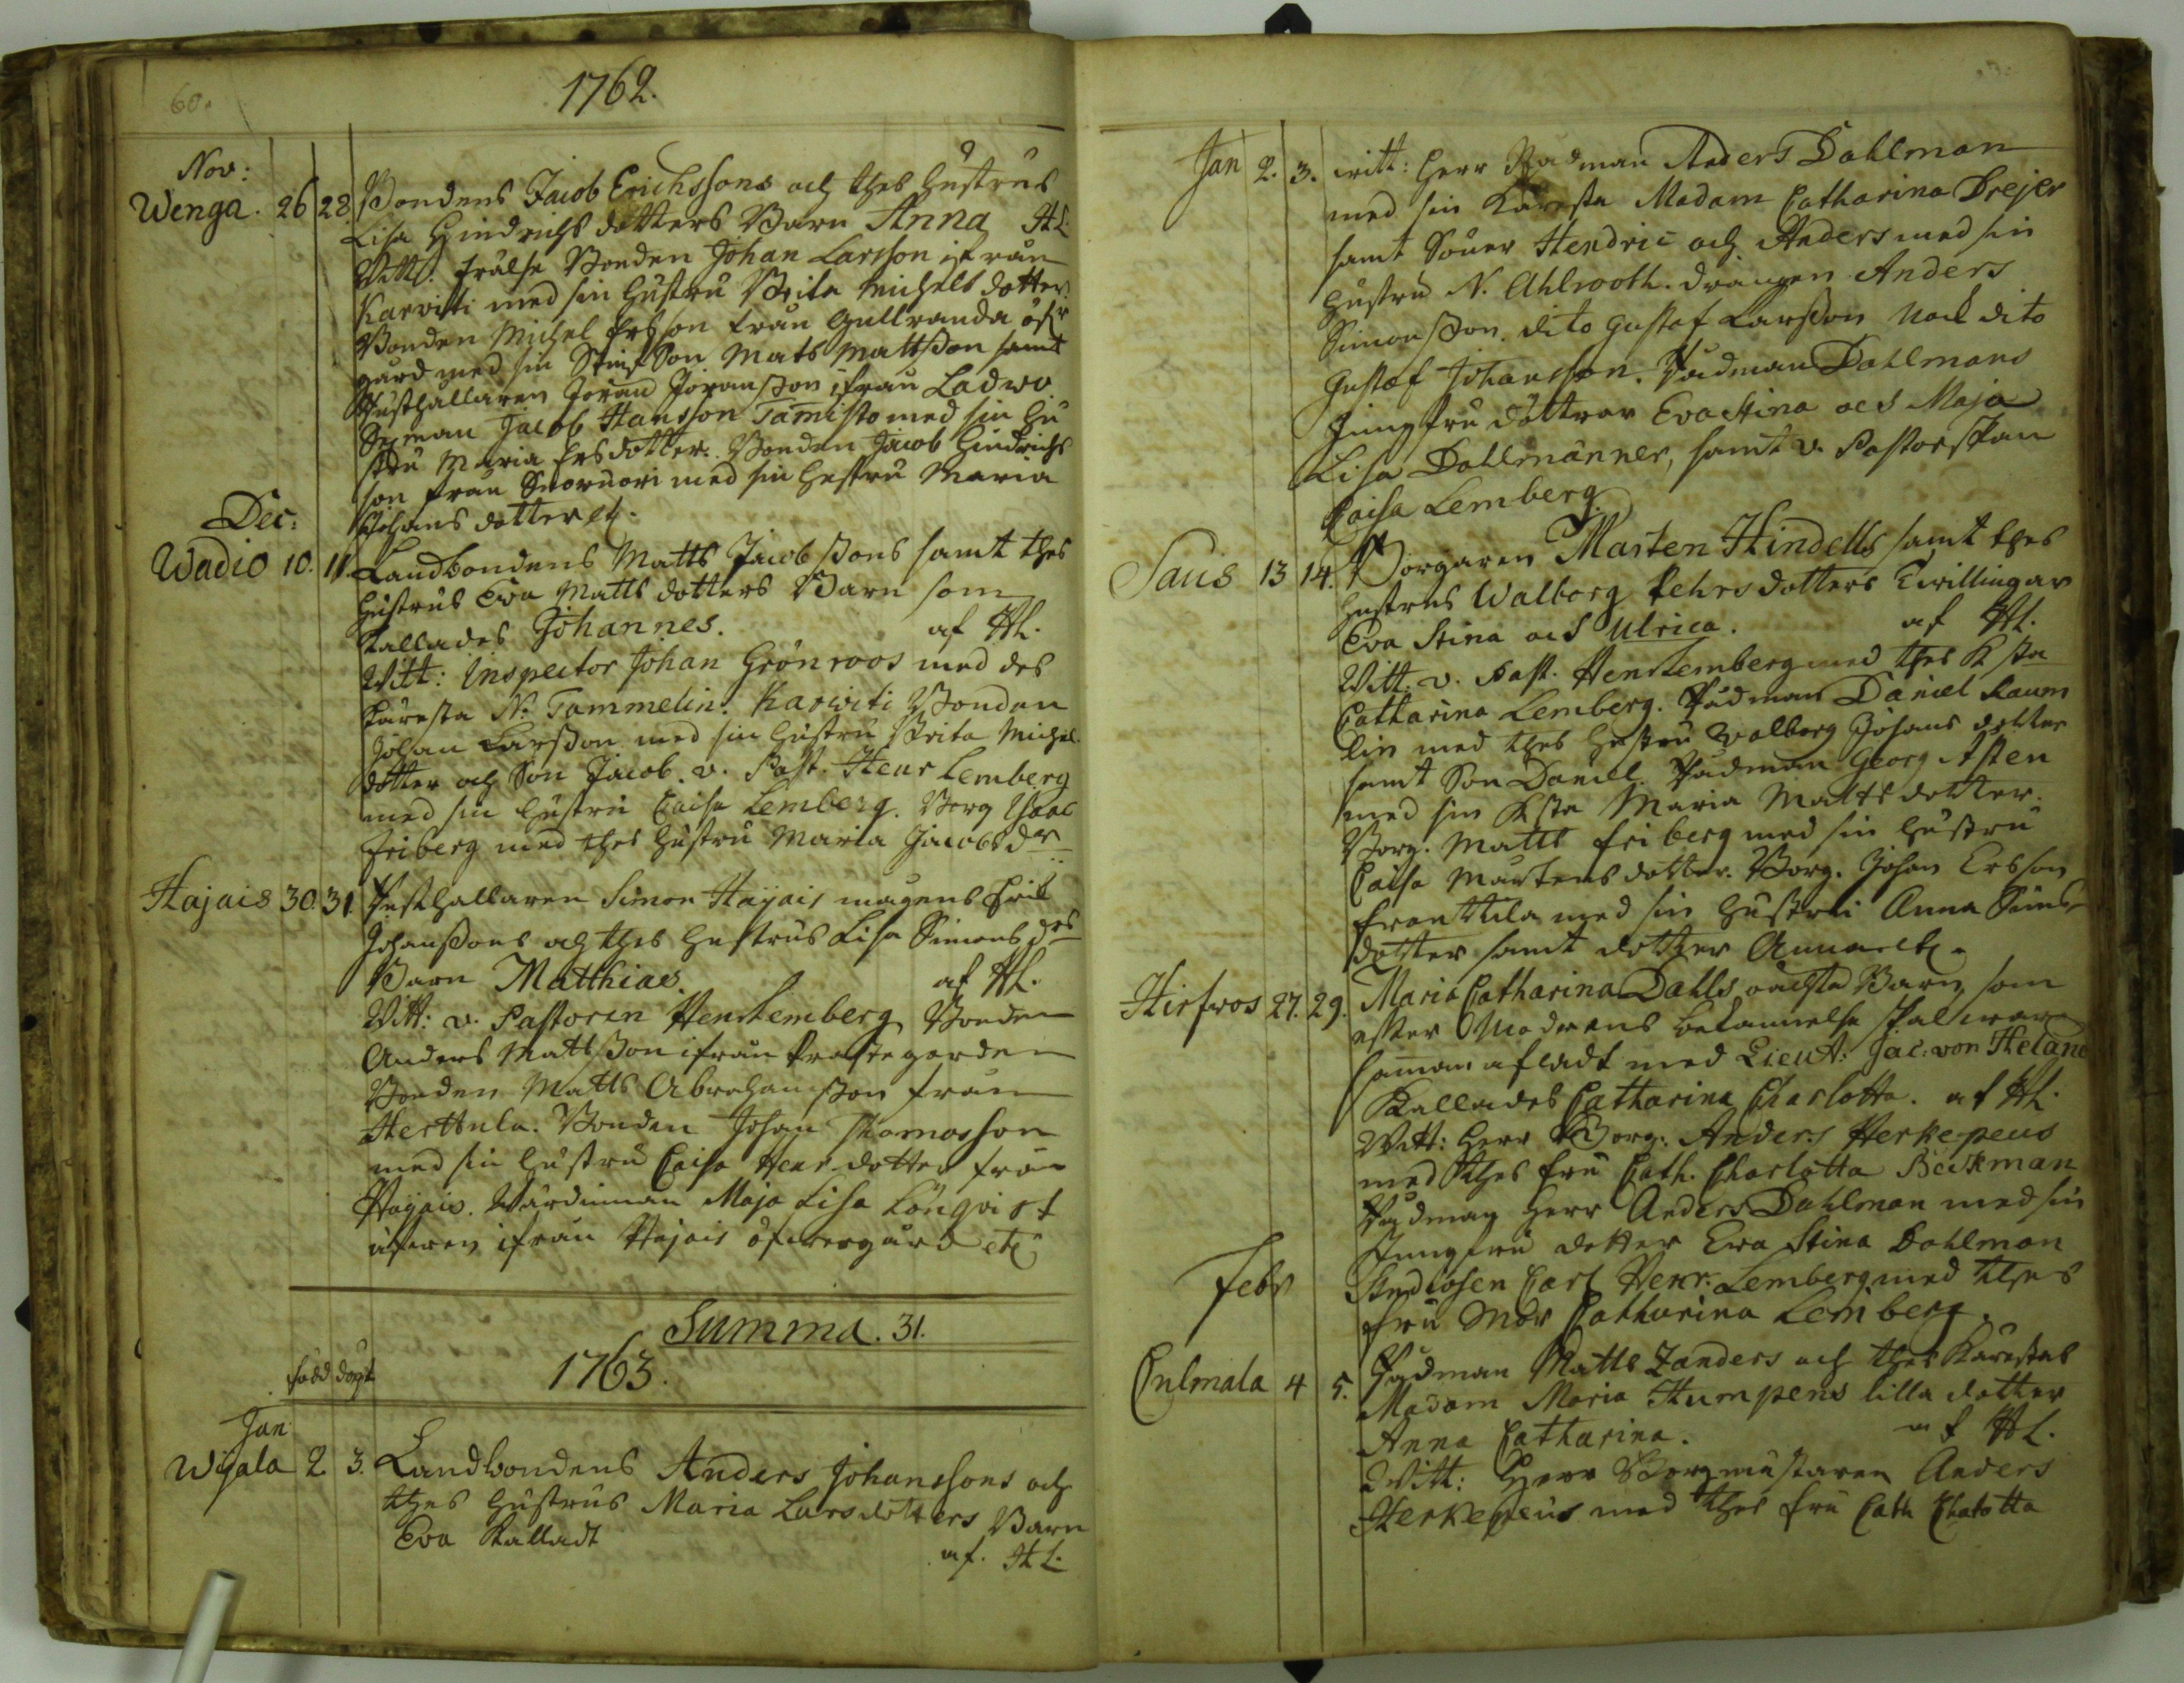 60.
1762.
Nov:
Wenga. 26 28. Bondens Jacob Erichssons och thes hustrus
Lisa Hindrichs dotters Barn Anna HL.
Witt: frälse Bonden Johan Larsson ifrån
Karviti med sin hustru Brita Michels dotter.
Bonden Michel Ersson från Gullranda öfr
gård med sin Stiuf Son Mats Mattsson samt
Rusthållaren Jöran Jöransson ifrån Ladwo
Sexman Jacob Hansson Tamisto med sin hu
stru Maria Ersdotter. Bonden Jacob Hindrichs
son från med sin hustru Maria
Johans dotter etc.
Dec:
Wadio 10. 11. Landbondens Matts Jacobssons samt thes
hustrus Eva Matts dotters Barn som
kallades Johannes. af HL.
Witt: Inspector Johan Grönroos med des
käresta N. Tammelin. Karviti Bonden
Johan Larsson med sin hustru Brita Michel
dotter och Son Jacob. v. Past. Henr Lemberg
med sin hustru Caisa Lemberg. Borg Isaac
Friberg med thes hustru Maria Jacobs dr
Hajais 30. 31. Rusthållaren Simon Hajais mågens Erik
Johanssons och thes hustrus Lisa Simons drs
Barn Matthias. af HL.
Witt: v. Pastoren Henr Lemberg Bonden
Anders Mattsson ifrån Prästegården
Bonden Matts Abrahamsson från
Herttula. Bonden Johan Thomasson
med sin hustru Caisa Henr. dotter från
Hajais. Wärdinnan Maja Lisa Lönqvist
äfwen ifrån Hajais öfwergård etc
Summa. 31.
1763.
född döpt
Jan
Wijala 2. 3. Landbondens Anders Johanssons och
thes hustrus Maria Larsdotters Barn
Eva kalladt af. HL.
Jan 2. 3. witt: Herr Rådman Anders Dahlman
med sin Käresta Madam Catharina Drejer
samt Söner Hendric och Anders med sin
hustru N. Ahlrooth. drängen Anders
Simonsson. dito Gustaf Larsson Nock dito
Gustaf Johansson. Rådman Dahlmans
Jungfru döttrar Eva Stina och Maja
Lisa Dahlmänner, samt v. Pastorskan
Caisa Lemberg.
Saus 13 14. Borgaren Mårten Hindells samt thes
hustrus Walborg Pehrs dotters Twillingar
Eva Stina och Ulrica. af HL.
Witt. v. Past. Henr Lemberg med thes K sta
Catharina Lemberg. Rådman Daniel Raum
lin med thes hustru Walborg Johans dotter
samt Son Daniel. Rådman Georg Asten
med sin Ksta Maria Matts dotter.
Borg. Matts Friberg med sin hustru
Caisa Mårtens dotter. Borg. Johan Ersson
Franttila med sin hustru Anna Sims
dotter samt dotter Anna etc.
Hirfwos 27. 29. Maria Catharina Dahls oächta Barn, som
efter Modrens bekännelse skal wara
samman afladt med Lieut: Jac. von Helane
Kallades Catharina Charlotta. af HL.
Witt: Herr Borg. Anders Herkepeus
med thes fru Cath. Charlotta Beckman
Rådman Herr Anders Dahlman med sin
Jungfru dotter Eva Stina Dahlman
Studiosen Carl Henr: Lemberg med thes
fru Mor Catharina Lemberg.
Febr
Culmala 4 5. Rådman Matts Zanders och thes Kärestas
Madam Maria Humpens lilla dotter
Anna Catharina. af HL.
Witt: Herr Borgmästaren Anders
Herkepeus med thes fru Cath Charlotta